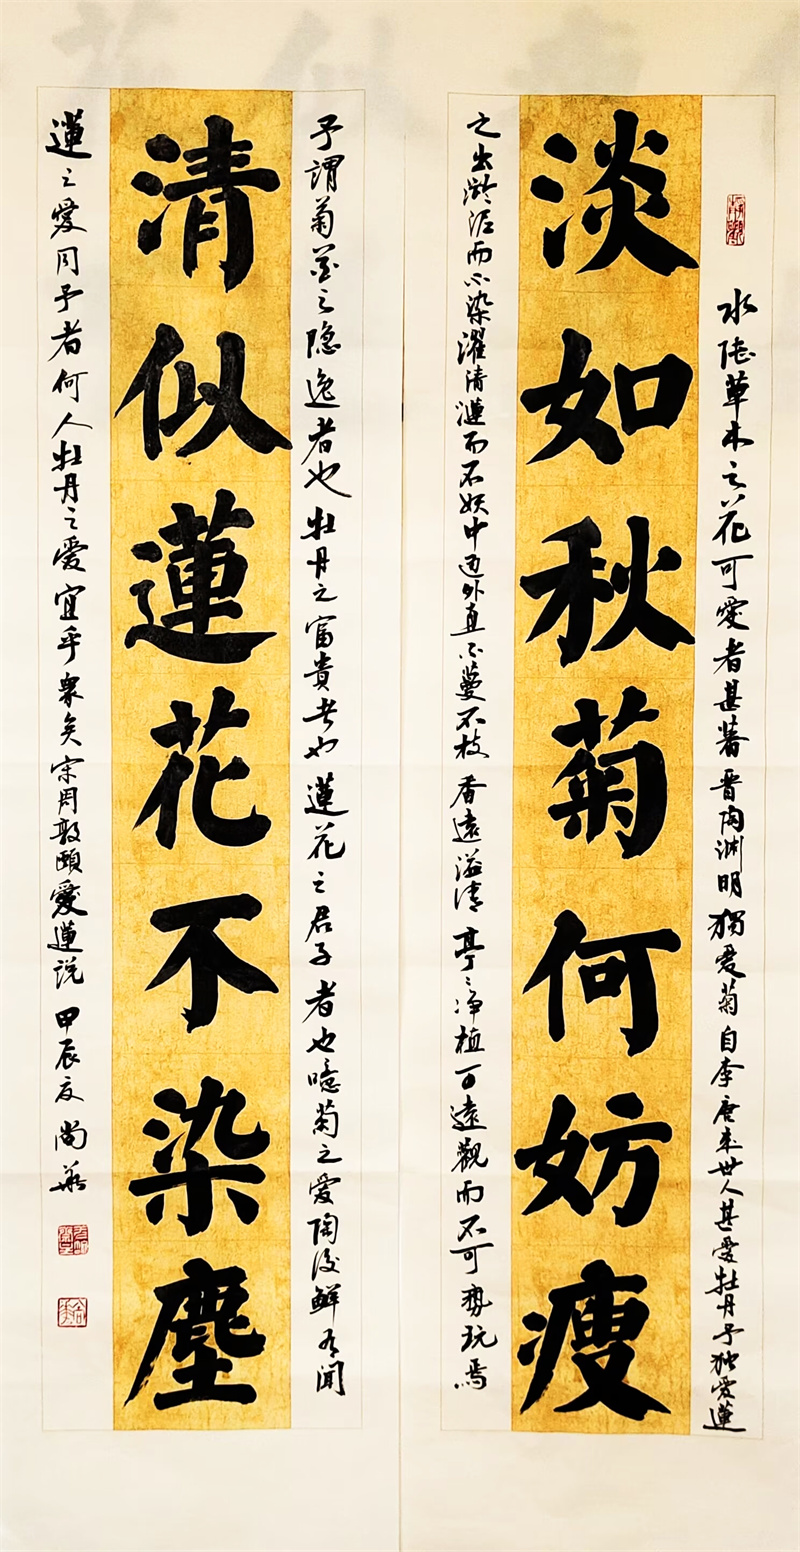 淡如秋菊何妨瘦
清似蓮花不染塵
水陸草木之花可愛者甚蕃晋陶渊明獨爱菊自李唐来世人甚爱牡丹予独爱蓮
之出淤泥而不染濯清漣而不妖中通外直不蔓不枝香遠溢清亭々净植可遠觀而不可褻玩焉
予謂菊花之隐逸者也牡丹之富貴者也蓮花之君子者也噫菊之爱陶後鮮有闻
蓮之愛同予者何人牡丹之愛宜乎衆矣宋周敦頤愛蓮説甲辰夏尚華